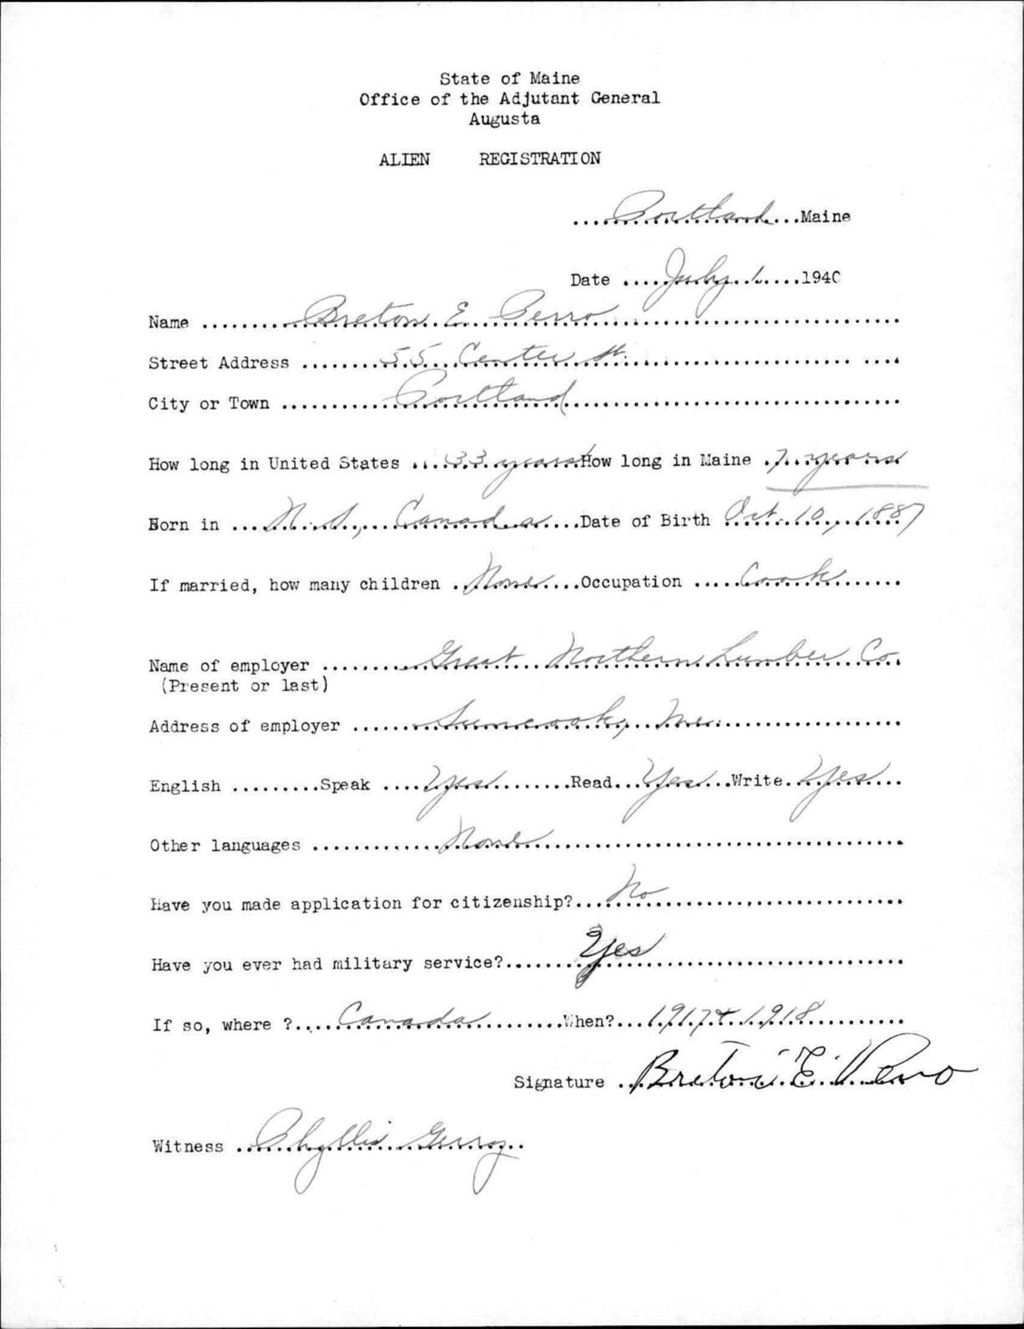 State of Maine
Office of the Adjutant General
Augusta
ALIEN REGISTRATION
Portland Maine
Date July 1 1940
Name Breton E. Perro
Street Address 55 Center St.
City or Town Portland
How long in United States 33 years How long in Maine 7 years
Born in N. S., Canada Date of Birth Oct. 10, 1887
If married, how many children None Occupation Cook
Name of employer Great Northern Lumber Co.
(Present or last)
Address of employer Me.
English Speak Yes Read Yes Write Yes
Other languages None
Have you made application for citizenship? No
Have you ever had military service? Yes
If so, where ? Canada When? 1917 + 1918
Signature Breton E. Perro
Witness Phyllis Gerry